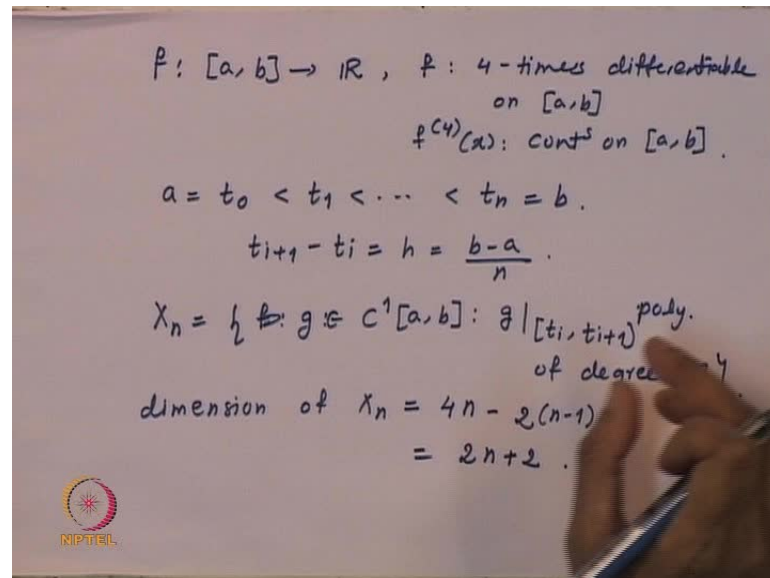 f : [a, b] → IR , f : 4-times differentiable
on [a, b]
f^(4)(x) : cont^s on [a, b] .
a = t_0 < t_1 < ... < t_n = b .
t_{i+1} - t_i = h = \frac{b-a}{n} .
X_n = { g ∈ C^1[a, b] : g|_{[t_i, t_{i+1})} poly.
of degree
dimension of X_n = 4n - 2(n-1)
= 2n+2 .
NPTEL